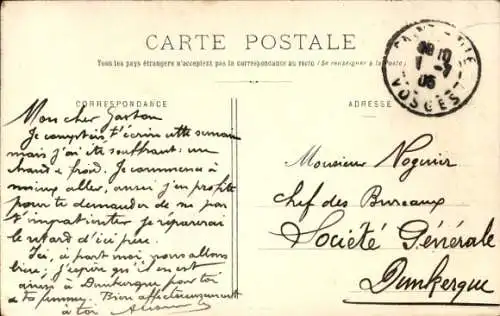 CARTE POSTALE
Tous les pays étrangers n'acceptent pas la correspondance au recto (Se renseigner à la Poste)
CORRESPONDANCE
Mon cher Gaston
Je comptais t'écrire cette semaine
mais j'ai été souffrant : un
chaud & froid. Je commence à
mieux aller, aussi j'en profite
pour te demander de ne pas
t'impatienter je réparerai
le retard d'ici peu.
Ici, à part moi, nous allons
bien ; j'espère qu'il en est
ainsi à Dunkerque pour toi
& ta femme. Bien affectueusement
à toi
ADRESSE
Monsieur Noguier
Chef des Bureaux
Société Générale
Dunkerque
VOSGES